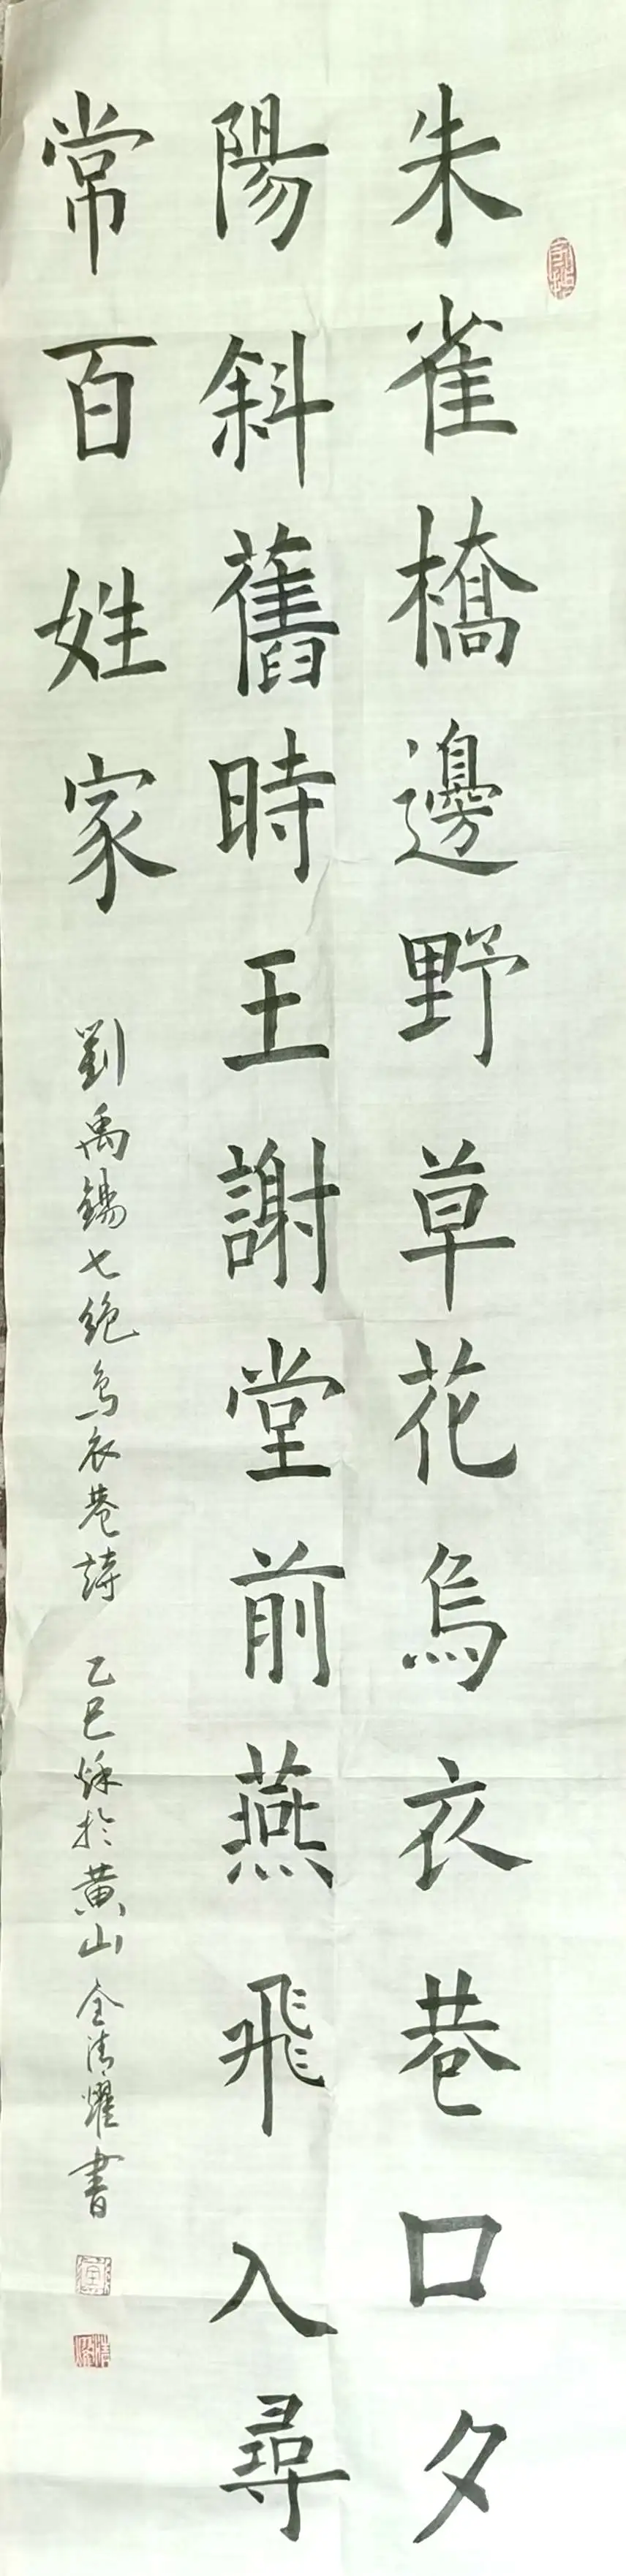 朱雀橋邊野草花烏衣巷口夕
陽斜舊時王謝堂前燕飛入尋
常百姓家
劉禹錫七絕烏衣巷詩 乙巳秌於黃山全清耀書